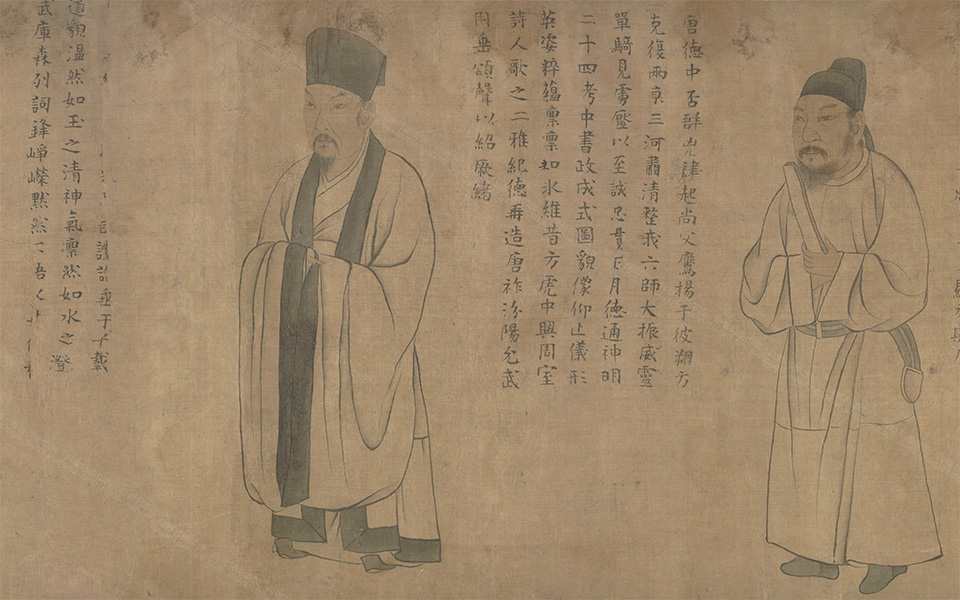 唐德中否群兇肆起尚父鷹揚于彼朔方
克復兩京三河肅清整我六師大振威靈
單騎見虜壓以至誠忠貫日月德通神明
二十四考中書政成式圖貌像仰止儀形
英姿粹蘊凜凜如冰維昔方虎中興周室
詩人歌之二雅紀德再造唐祚汾陽允武
用垂頌聲以紹厥緒
垂于千載
道貌溫然如玉之清神氣凜然如水之澄
武庫森列詞鋒崢嶸默然